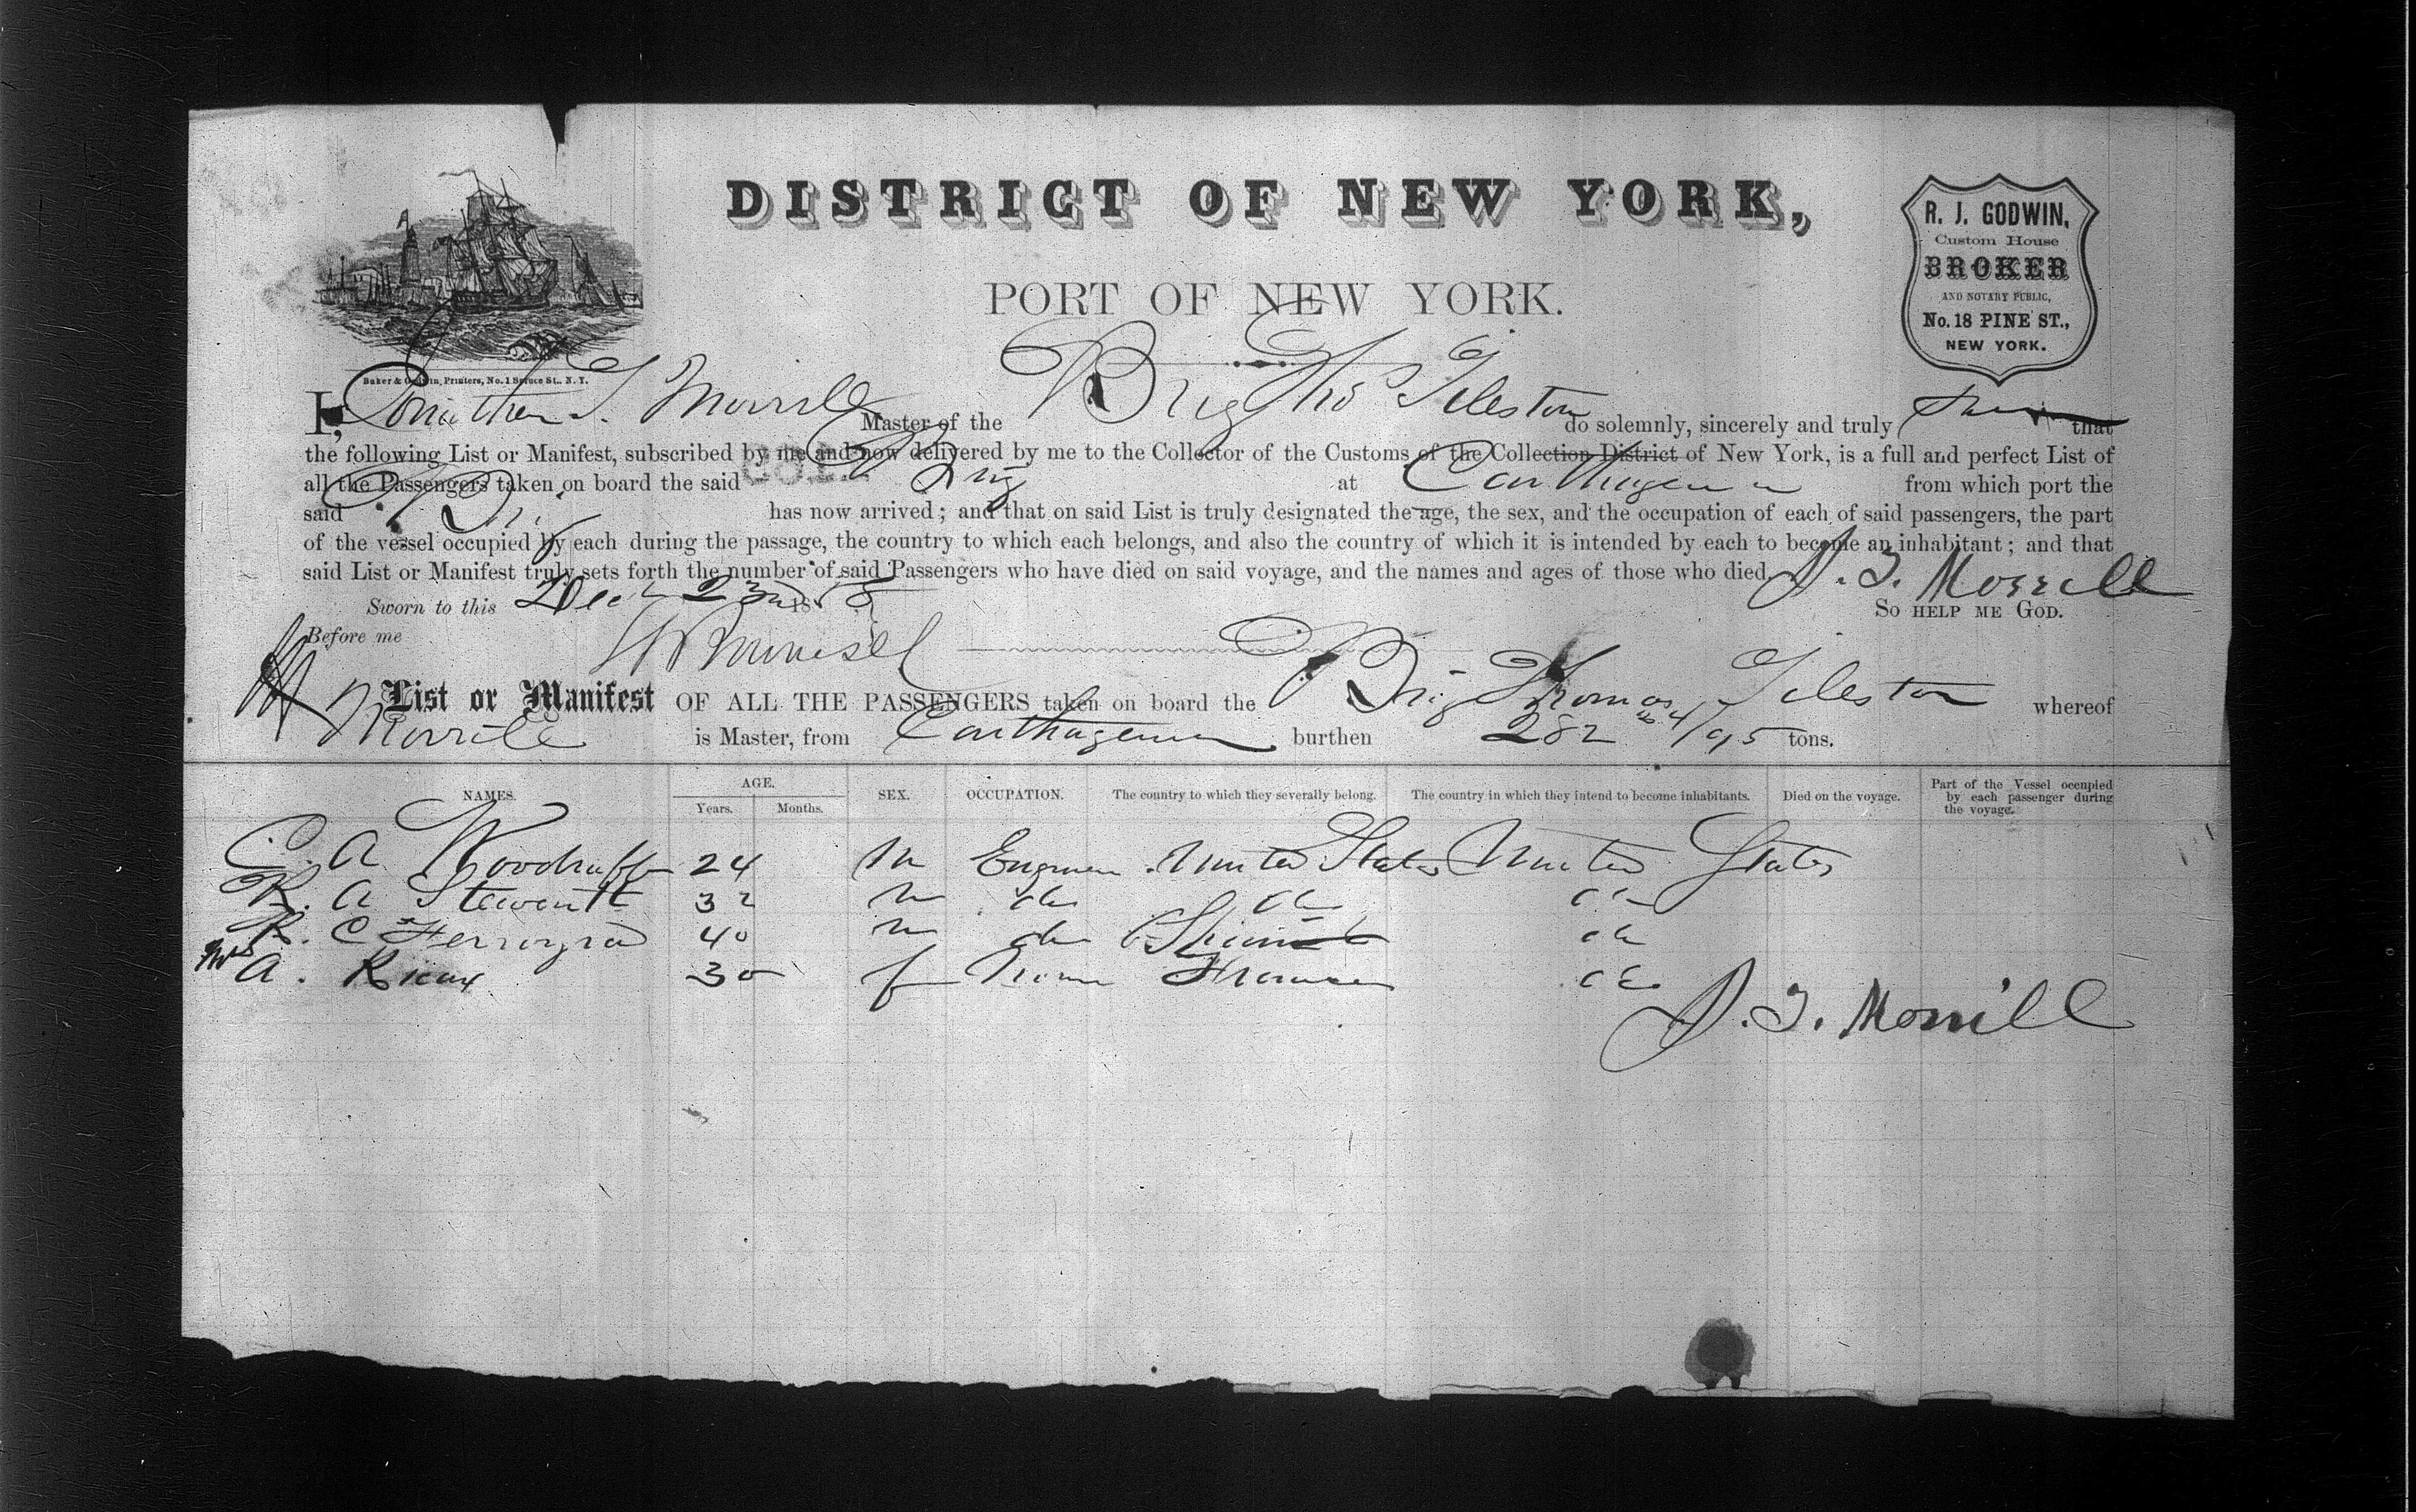 DISTRICT OF NEW YORK,
PORT OF NEW YORK.
R. J. GODWIN,
Custom House
BROKER
AND NOTARY PUBLIC,
No. 18 PINE ST.,
NEW YORK.
Baker & Godwin, Printers, No. 1 Spruce St., N. Y.
I, Jonathan T. Morrill Master of the Brig Thos Tileston do solemnly, sincerely and truly that
the following List or Manifest, subscribed by me and now delivered by me to the Collector of the Customs of the Collection District of New York, is a full and perfect List of
all the Passengers taken on board the said Brig at Carthagena from which port the
said Brig has now arrived; and that on said List is truly designated the age, the sex, and the occupation of each of said passengers, the part
of the vessel occupied by each during the passage, the country to which each belongs, and also the country of which it is intended by each to become an inhabitant; and that
said List or Manifest truly sets forth the number of said Passengers who have died on said voyage, and the names and ages of those who died. J. T. Morrill
Sworn to this Dec 23 185 So HELP ME GOD.
Before me
List or Manifest OF ALL THE PASSENGERS taken on board the Brig Thomas Tileston whereof
Morrill is Master, from Carthagena burthen 282 4/95 tons.
NAMES. AGE. Years. Months. SEX. OCCUPATION. The country to which they severally belong. The country in which they intend to become inhabitants. Died on the voyage. Part of the Vessel occupied by each passenger during the voyage.
C. A Woodruff 24 m Engineer United States United States
R. A Stewart 32 m do do do
R. C 40 m do do
Mrs A. Rieux 30 f None France do
J. T. Morrill